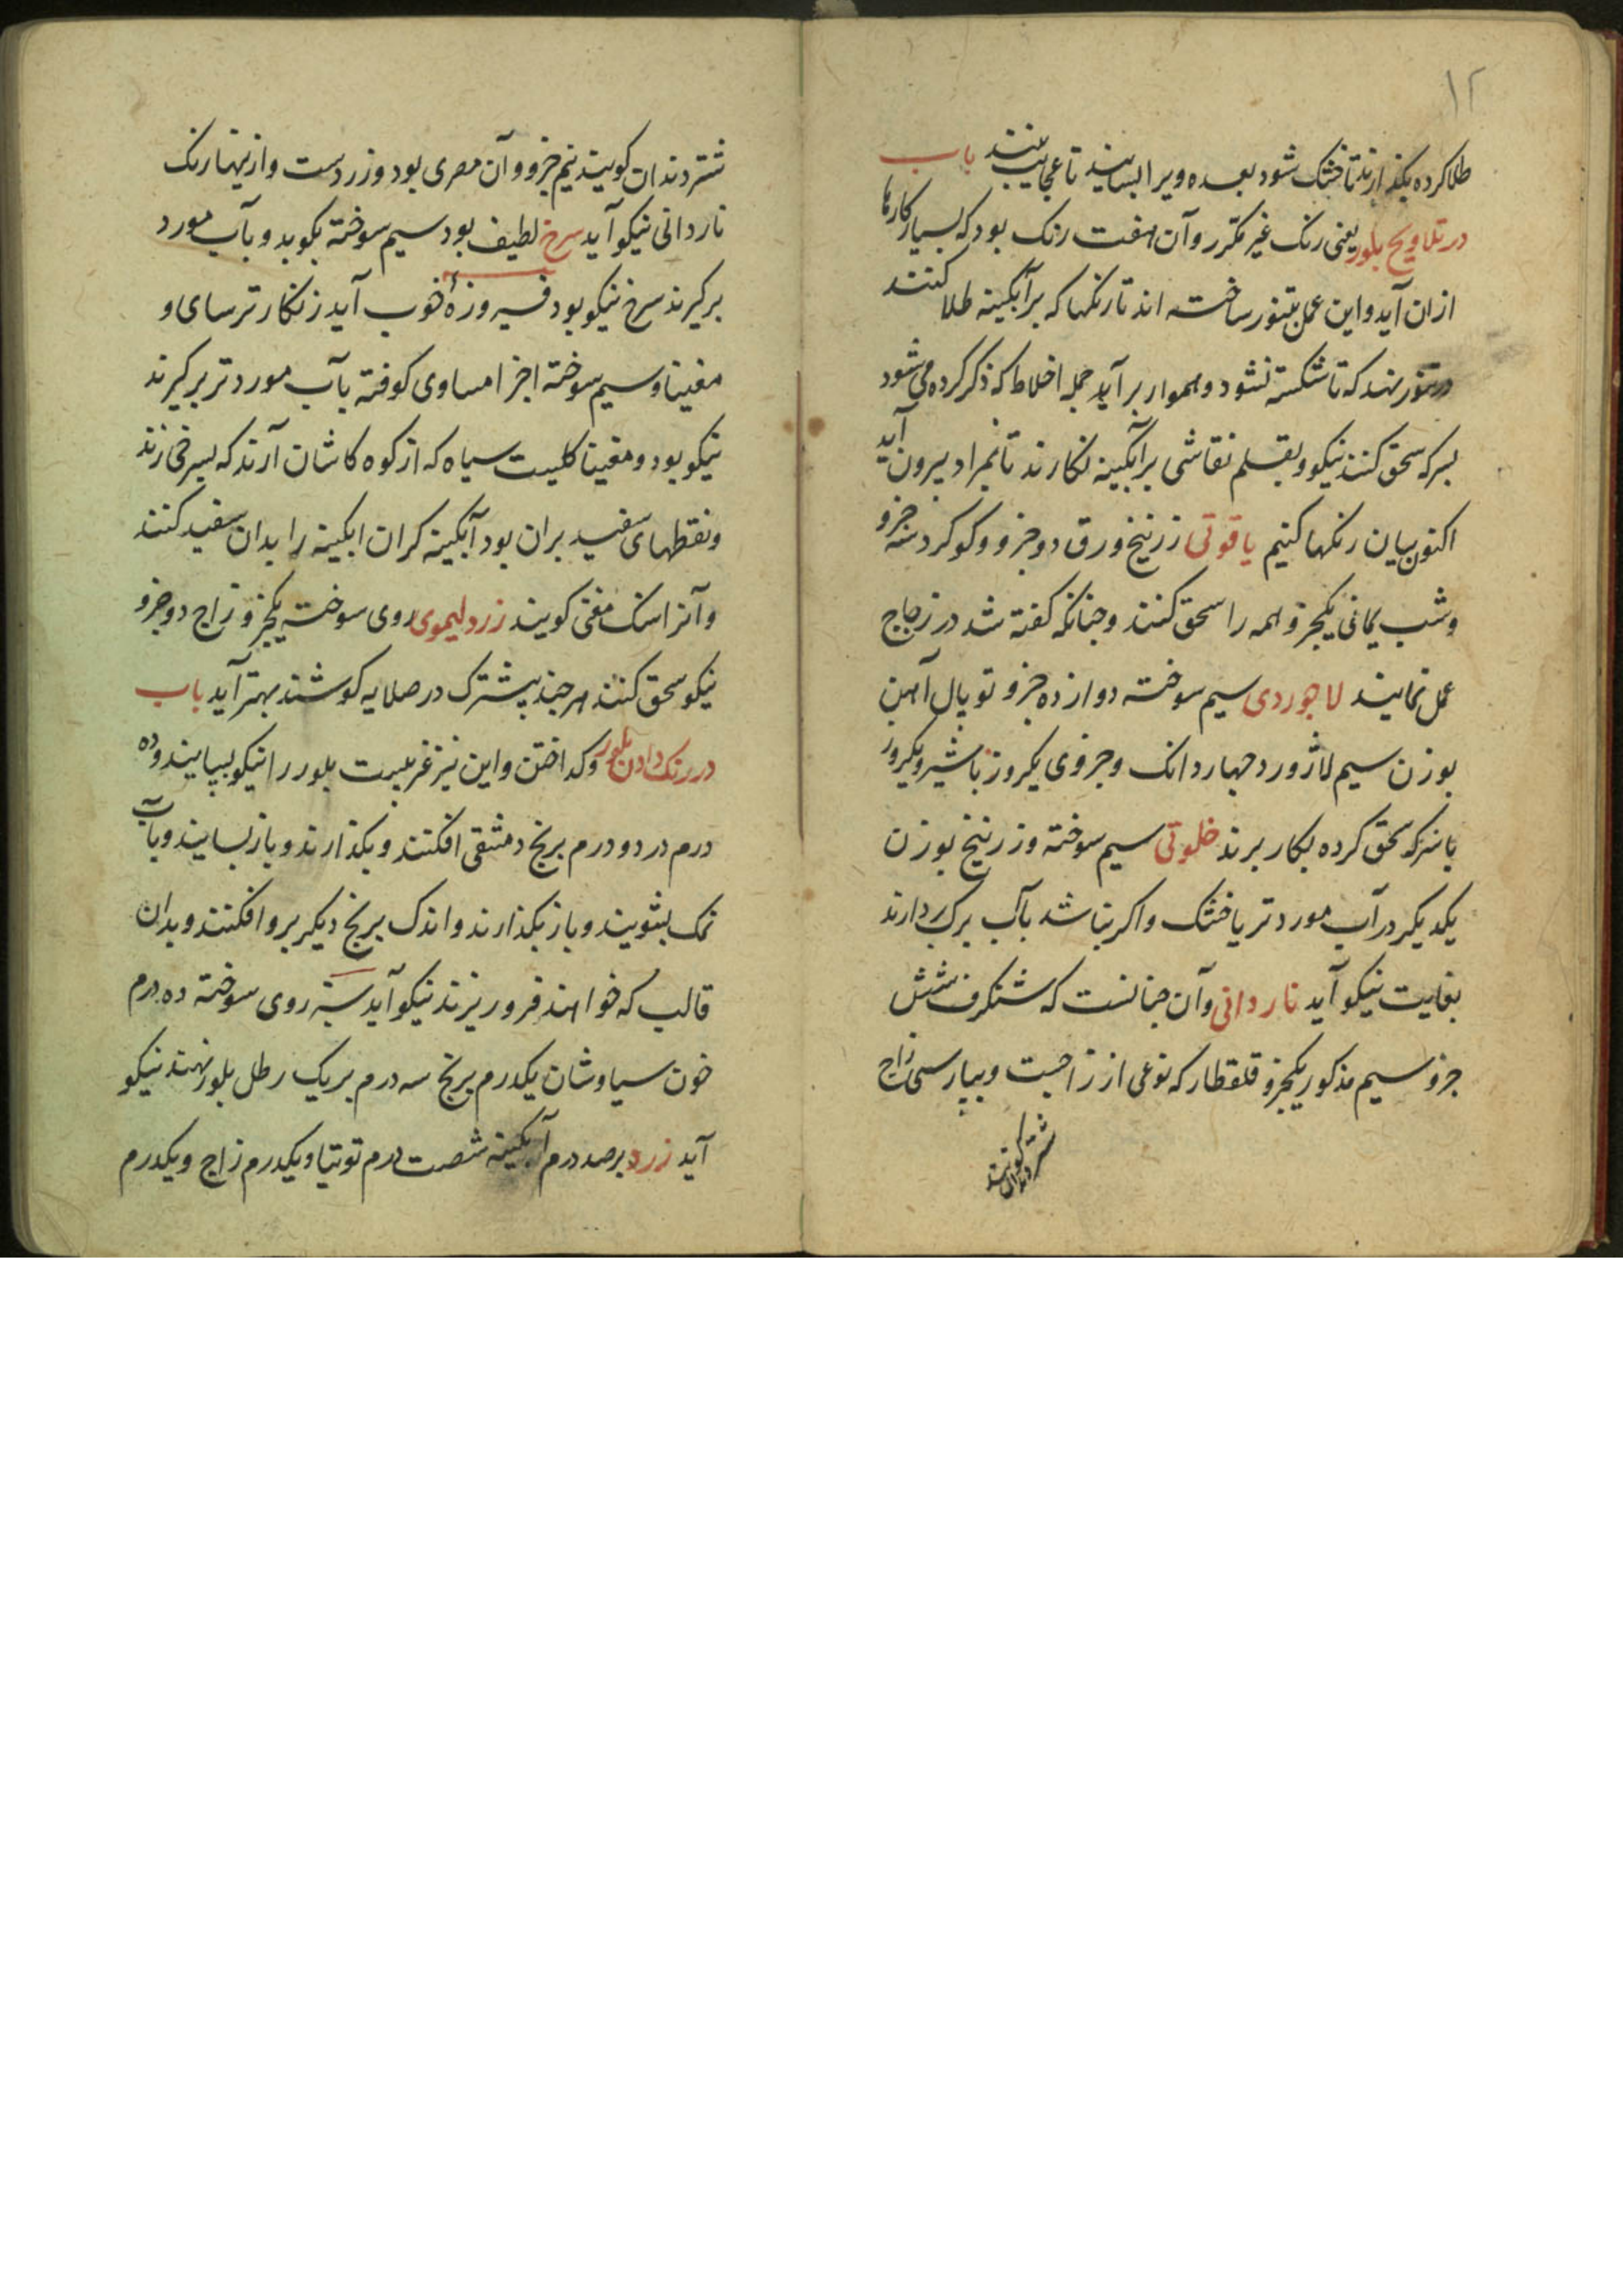 ۱۲
طلا کرده بکذارند تا خشک شود بعده ویرا بسایند تا عجایب بینند باب
در تلاویح بلور یعنی رنک غیر مکرر و آن هفت رنک بود که بسیار کارها
ازان آید و این عمل بتنور ساخته اند تا رنکها که بر آبکینه طلا کنند
در تنور نهند که تا شکسته نشود و هموار برآید جمله اخلاط که ذکر کرده می شود
بسرکه سحق کنند نیکو و بقلم نقاشی بر آبکینه نکارند تا بمراد بیرون آید
اکنون بیان رنکها کنیم یاقوتی زرنیخ ورق دو جزو و کوکرد سه جزو
و شب یمانی یکجزو همه را سحق کنند و جنانکه کفته شد در زجاج
عمل نمایند لاجوردی سیم سوخته دوازده جزو توبال آهن
بوزن سیم لاژورد جهار دانک و جزوی یکروز با شیر و یکروز
با سرکه سحق کرده بکار برند خلوتی سیم سوخته و زرنیخ بوزن
یکدیکر در آب مورد تر یا خشک و اکر نباشد بآب برک بردارند
بغایت نیکو آید ناردانی و آن جنانست که شنکرف شش
جزو سیم مذکور یکجزو قلقطار که نوعی از زاجست و بپارسی زاج
شتر دندان کویند
شتر دندان کویند نیم جزو و آن مصری بود و زردست و ازینها رنک
ناردانی نیکو آید سرخ لطیف بود سیم سوخته بکوبد و بآب مورد
برکیرند سرخ نیکو بود فیروزهٔ خوب آید زنکار ترسای و
مغنیا و سیم سوخته اجزا مساوی کوفته بآب مورد تر برکیرند
نیکو بود و مغنیا کلیست سیاه که از کوه کاشان آرند که بسرخی زند
و نقطهای سفید بران بود آبکینه کران ابکینه را بدان سفید کنند
و آنرا سنک مغنی کویند زرد لیموی روی سوخته یکجزو زاج دو جزو
نیکو سحق کنند هر جند بیشترک در صلایه کوشند بهتر آید باب
در رنک دادن بلور و کداختن و این نیز غریبست بلور را نیکو بسایند و ده
درم در دو درم برنج دمشقی افکنند و بکذارند و باز بسایند و بآب
نمک بشویند و باز بکذارند و اندک برنج دیکر برو افکنند و بدان
قالب که خواهند فرو ریزند نیکو آید سبز روی سوخته ده درم
خون سیاوشان یکدرم برنج سه درم بر یک رطل بلور نهند نیکو
آید زرد بر صد درم آبکینه شصت درم توتیا و یکدرم زاج و یکدرم